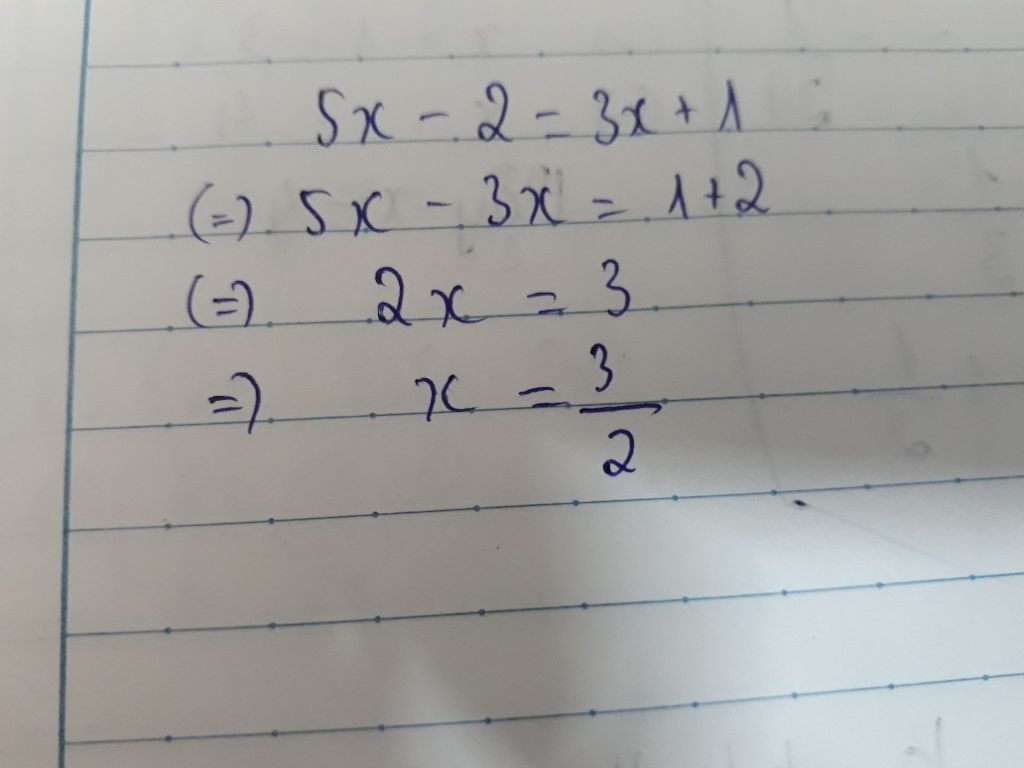 5x - 2 = 3x + 1
(=) 5x - 3x = 1 + 2
(=) 2x = 3
=) x = 3/2